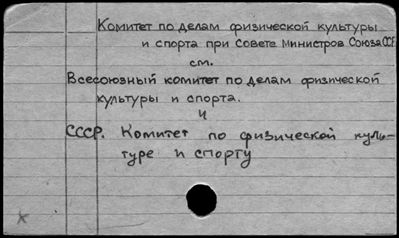 Комитет по делам физической культуры
и спорта при Совете Министров Союза ССР
см.
Всесоюзный комитет по делам физической
культуры и спорта.
и
СССР. Комитет по физической куль-
туре и спорту